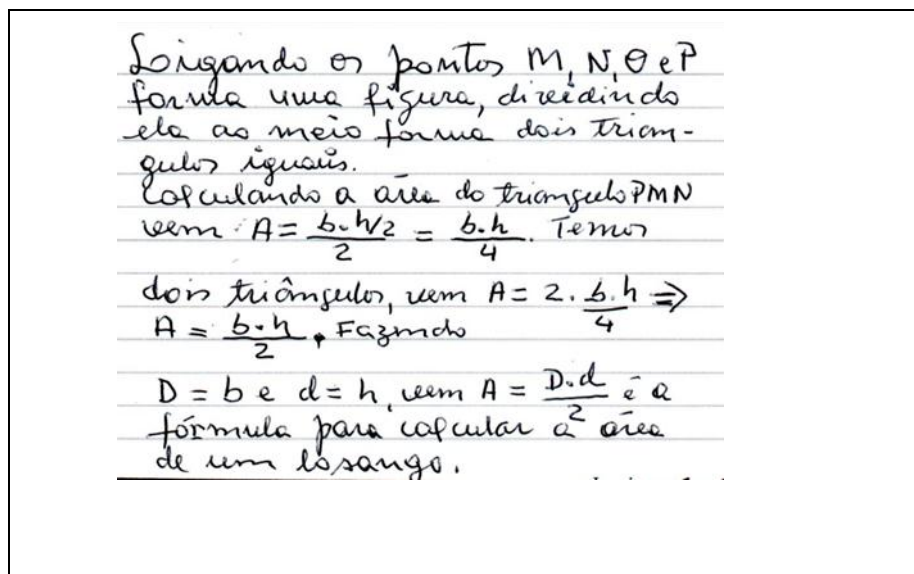 Ligando os pontos M, N, O e P
forma uma figura, dividindo
ela ao meio forma dois triân-
gulos iguais.
Calculando a área do triangulo PMN
vem A = b.h/2 / 2 = b.h / 4. Temos
dois triângulos, vem A = 2. b.h / 4 ⇒
A = b.h / 2. Fazendo
D = b e d = h, vem A = D.d / 2 é a
fórmula para calcular a área
de um losango.